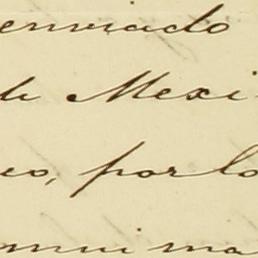 enviado
de Mexi
eo, por lo